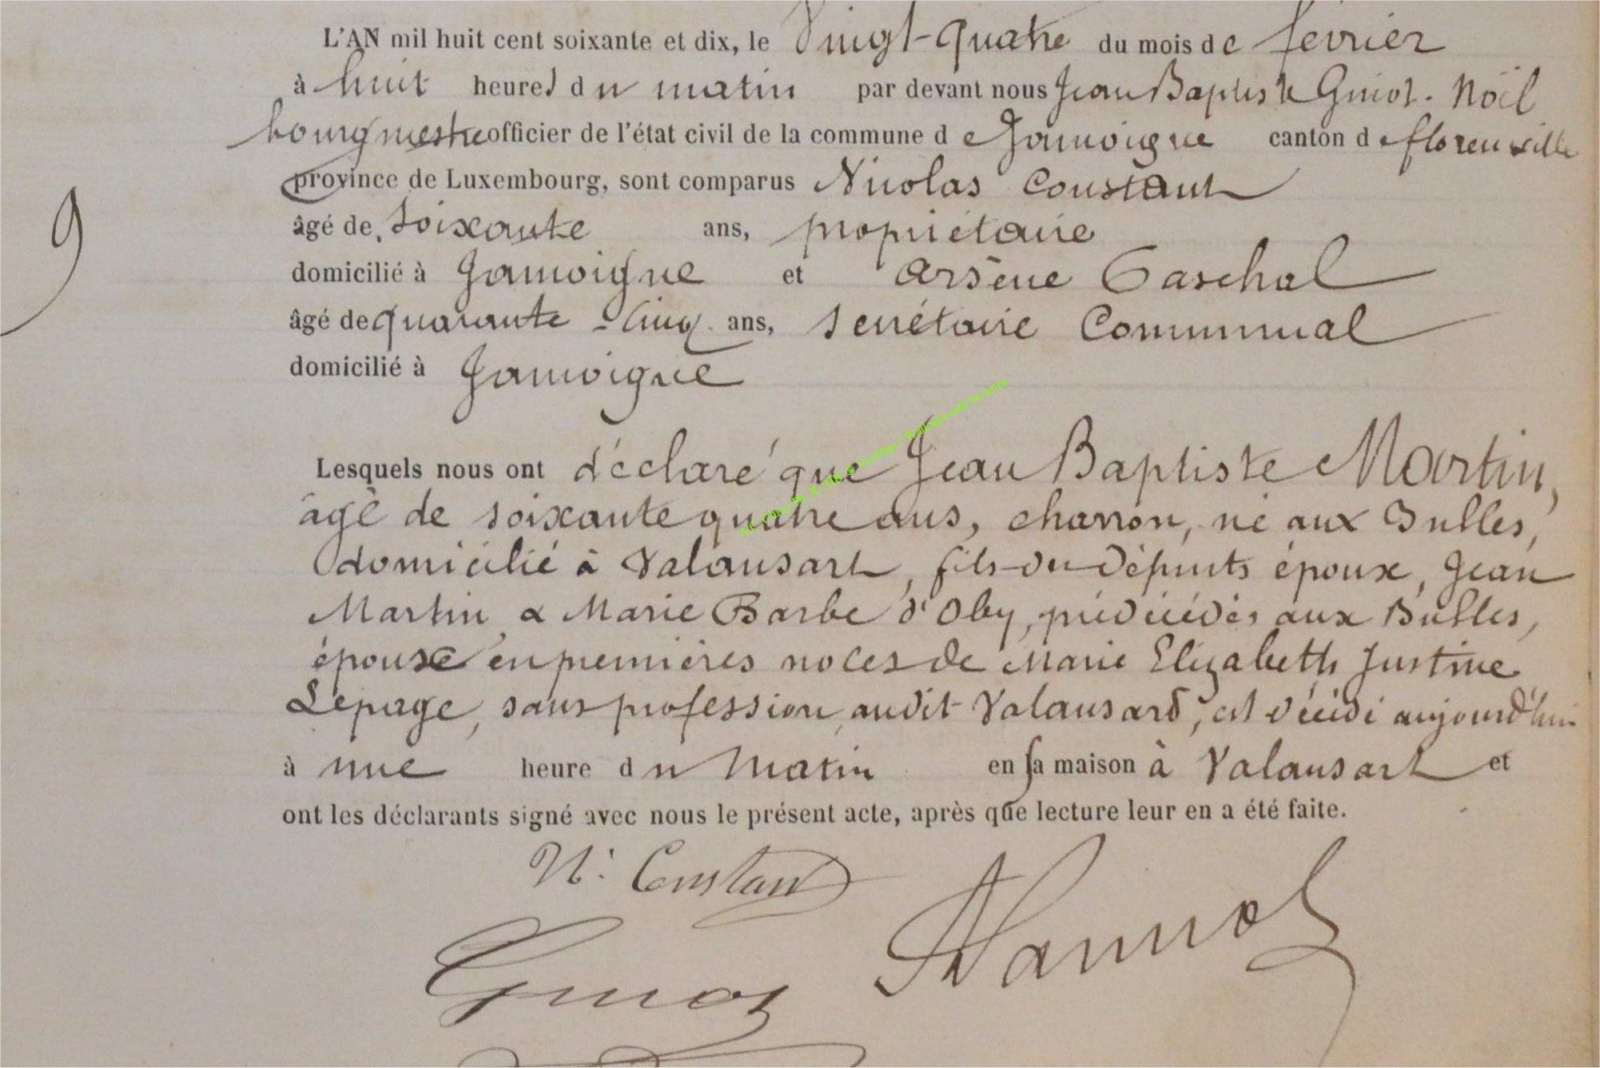 L'AN mil huit cent soixante et dix, le Vingt-quatre du mois de février
à huit heures du matin par devant nous Jean Baptiste Guiot-Noël
bourgmestre officier de l'état civil de la commune de Jamoigne canton de florenville
province de Luxembourg, sont comparus Nicolas Constant
âgé de soixante ans, propriétaire
domicilié à Jamoigne et Arsène
âgé de quarante-cinq ans, secrétaire Communal
domicilié à Jamoigne
9
Lesquels nous ont déclaré que Jean Baptiste Martin,
âgé de soixante quatre ans, charron, né aux Bulles,
domicilié à Valansart, fils des défunts époux, Jean
Martin & Marie Barbe d'Oby, prédécédés aux Bulles,
époux en premières noces de Marie Elizabeth Justine
Lepage, sans profession, audit Valansard, est décédé aujourd'hui
à une heure du matin en sa maison à Valansart et
ont les déclarants signé avec nous le présent acte, après que lecture leur en a été faite.
N. Constant
Guiot